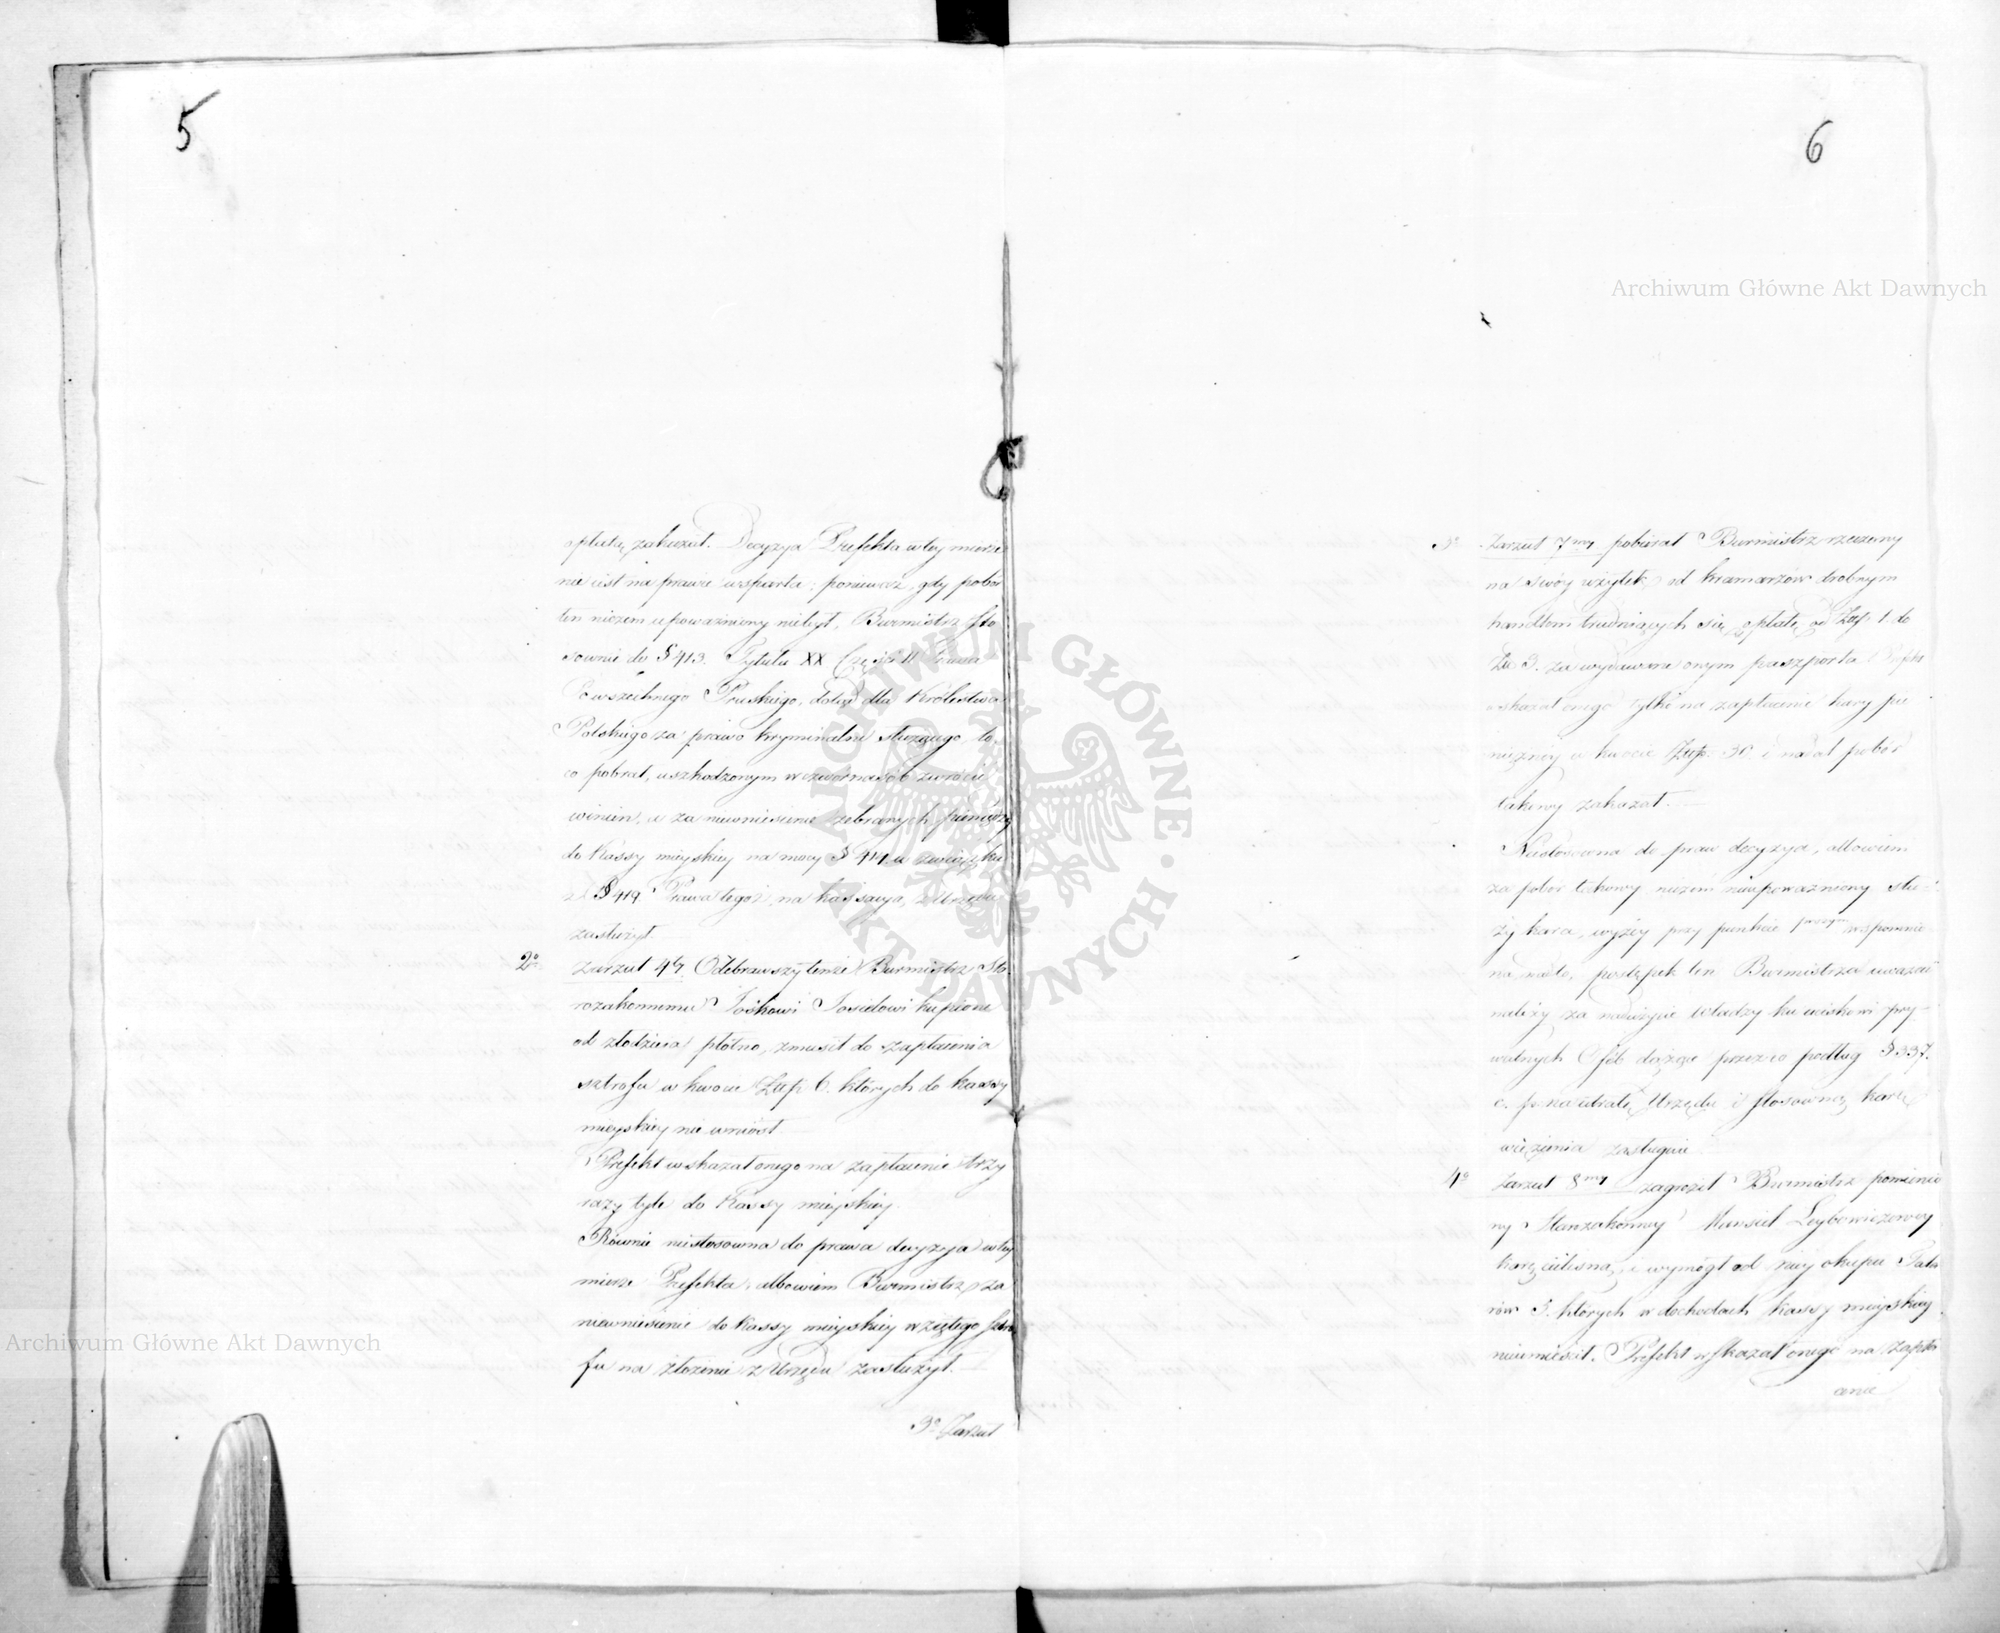 5
opłatę zakazał. Decyzya Prefekta w tey mierze
nie iest na prawie wsparta; ponieważ, gdy pobór
ten niczem upoważniony nie był, Burmistrz sto
sownie do § 413. Tytułu XX Części II Prawa
Powszechnego Pruskiego, dotąd dla Królestwa
Polskiego za prawo kryminalne służącego, to
co pobrał, uszkodzonym w czwórnasób zwrócić
winien, a za niewniesienie zebranych pieniędzy
do Kassy mieyskiey na mocy § 414 w związku
z § 419 Prawa tegoż, na kassacyą z Urzędu
zasłużył.
2o Zarzut 4ty. Odebrawszy tenże Burmistrz Sta
rozakonnemu Joskowi Joselowi kupione
od złodzieia płótno, zmusił do zapłacenia
sztrofu w kwocie Złłp. 6. których do kassy
mieyskiey nie wniósł
Prefekt wskazał onego na zapłacenie trzy
razy tyle do Kassy mieyskiey.
Równie niestosowna do prawa decyzya w tey
mierze Prefekta, albowiem Burmistrz za
niewniesienie do Kassy mieyskiey wziętego sztro
fu na złożenie z Urzędu zasłużył.
3o Zarzut
6
3o Zarzut 7my pobierał Burmistrz rzeczony
na swóy użytek od kramarzów drobnym
handlem trudniących się opłatę od Złłp. 1. do
Zł. 3. za wydawane onym paszporta Prefekt
wskazał onego tylko na zapłacenie kary pie
niężney w kwocie Złłp. 30 i nadal pobór
takowy zakazał.
Niestosowna do praw decyzya, albowiem
za pobór takowy niczem nieupoważniony słu
ży kara, wyżey przy punkcie pierwszym wspomnio
na, nadto, postępek ten Burmistrza uważać
należy za nadużycie Władzy ku uciskowi pry
watnych Osób dążące przez co podług § 337.
c. p. na utratę Urzędu i stosowną karę
więzienia zasługuie
4o Zarzut 8my zagroził Burmistrz pomienio
ny Starozakonney Mansiel Leybowiczowey
karą cielesną, i wymógł od niey okupu Tala
rów 3. których w dochodach kassy mieyskiey
nieumieścił. Prefekt wskazał onego na zapła
cenie